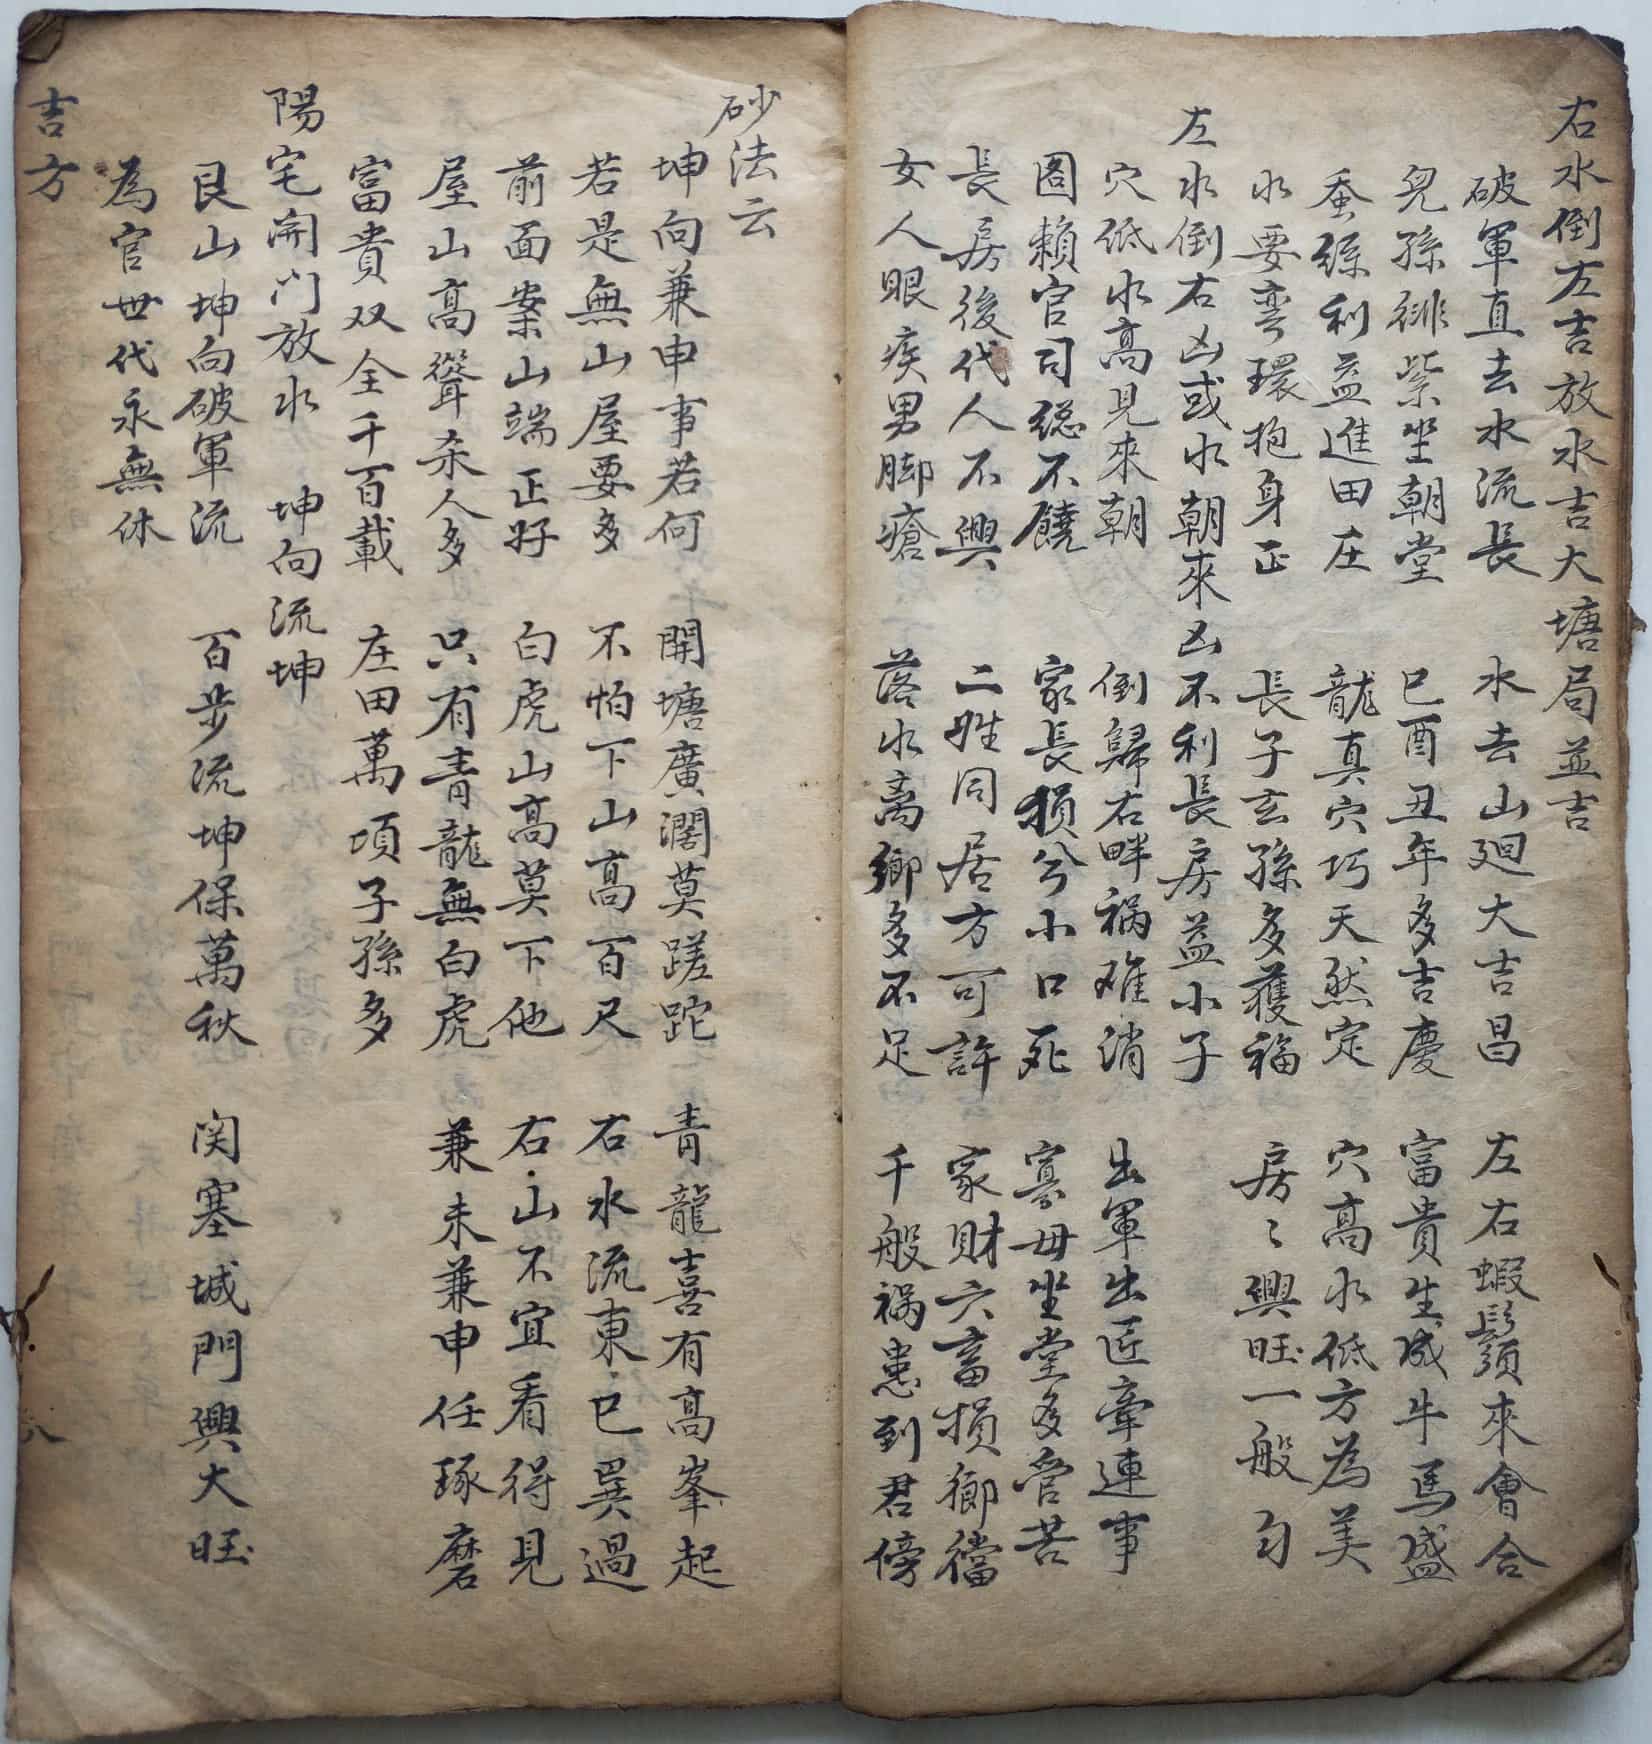 右水倒左吉放水吉大塘局並吉
破軍直去水流長 水去山廻大吉昌 左右蝦鬚來會合
兒孫緋紫坐朝堂 巳酉丑年多吉慶 富貴生成牛馬盛
蚕綵利益進田庄 龍真穴巧天然定 穴高水低方為美
水要弯環抱身正 長子玄孫多獲福 房〻興旺一般匀
左水倒右凶或水朝來凶不利長房益小子
穴低水高見來朝 倒歸右畔禍难消 出軍出匠牽連事
圖賴官司總不饒 家長損兮小口死 寡母坐堂多管苦
長房後代人不興 二姓同居方可許 家財六畜損鄉檔
女人眼疾男脚瘡 落水离鄉多不足 千般禍患到君傍
砂法云
坤向兼申事若何 開塘廣濶莫蹉跎 青龍喜有高峯起
若是無山屋要多 不怕下山高百尺 右水流東巳巽過
前面案山端正好 白虎山高莫下他 右山不宜看得見
屋山高聳杀人多 只有青龍無白虎 兼未兼申任琢磨
富貴双全千百載 庄田萬項子孫多
陽宅開门放水 坤向流坤
艮山坤向破軍流 百步流坤保萬秋 関塞城門興大旺
為官世代永無休
吉方
八